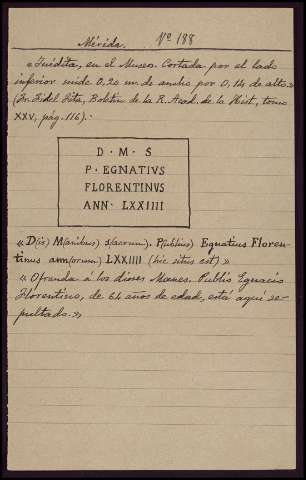 Mérida. Nº 188
«Inédita, en el Museo. Cortada por el lado
inferior mide 0,20 m. de ancho por 0,14 de alto»
(Fr. Fidel Fita, Boletín de la R. Acad. de la Hist, tomo
XXV, pág. 116).-
D · M · S
P · EGNATIVS
FLORENTINVS
ANN · LXXIIII
« D(is) M(anibus) s(acrum). P(ublius) Egnatius Floren-
tinus ann(orum) LXXIIII (hic situs est) »
« Ofrenda á los dioses Manes. Publio Egnacio
Florentino, de 64 años de edad, está aquí se-
pultado.»